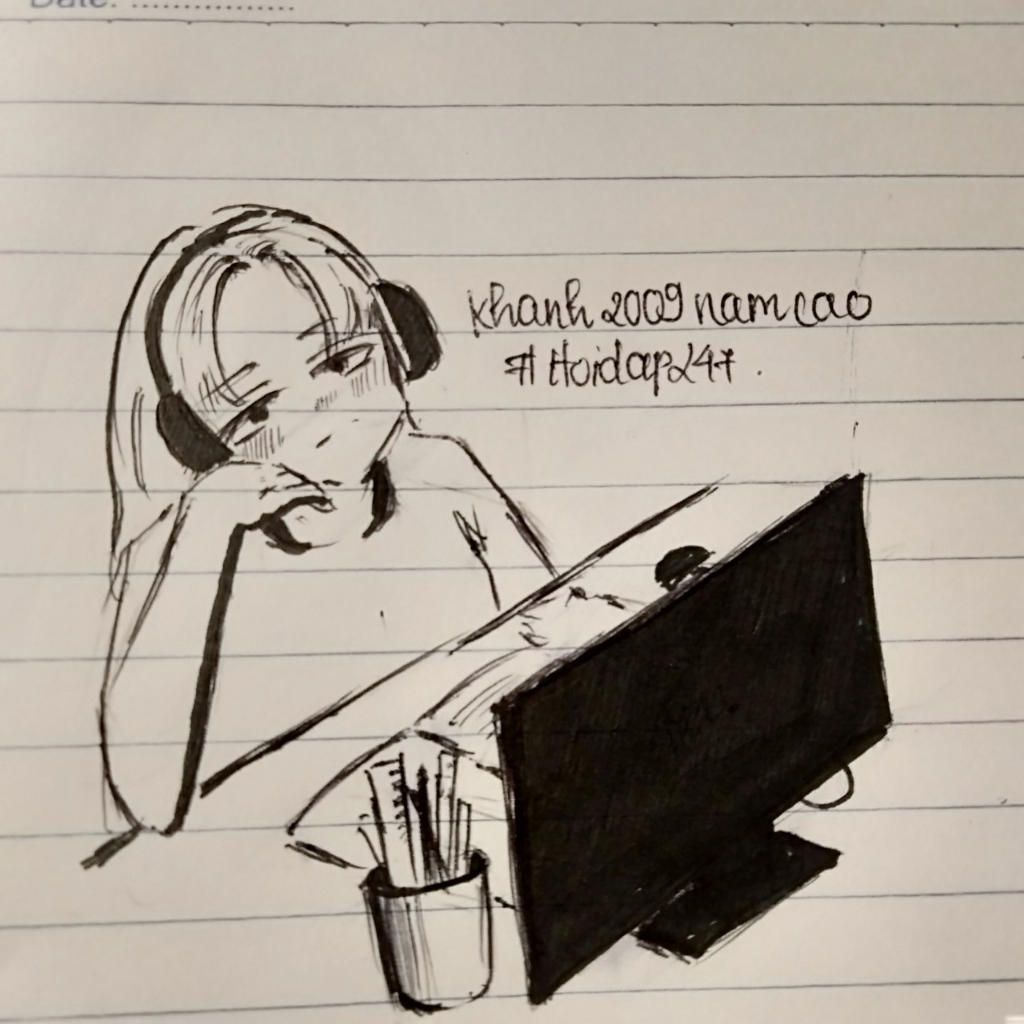 Date: ................
Khanh2009namcao
#Hoidap247.